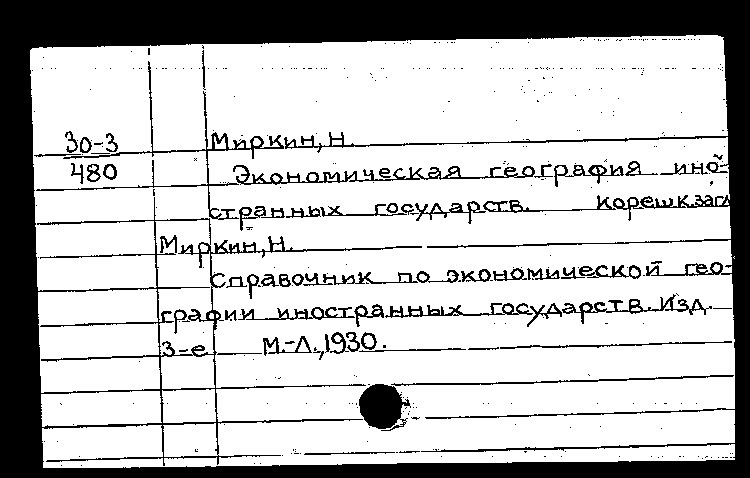 30-3 Миркин, Н.
480 Экономическая география ино-
странных государств. Корешк.загл
Миркин, Н.
Справочник по экономической гео-
графии иностранных государств. Изд.
3-е М.-Л., 1930.